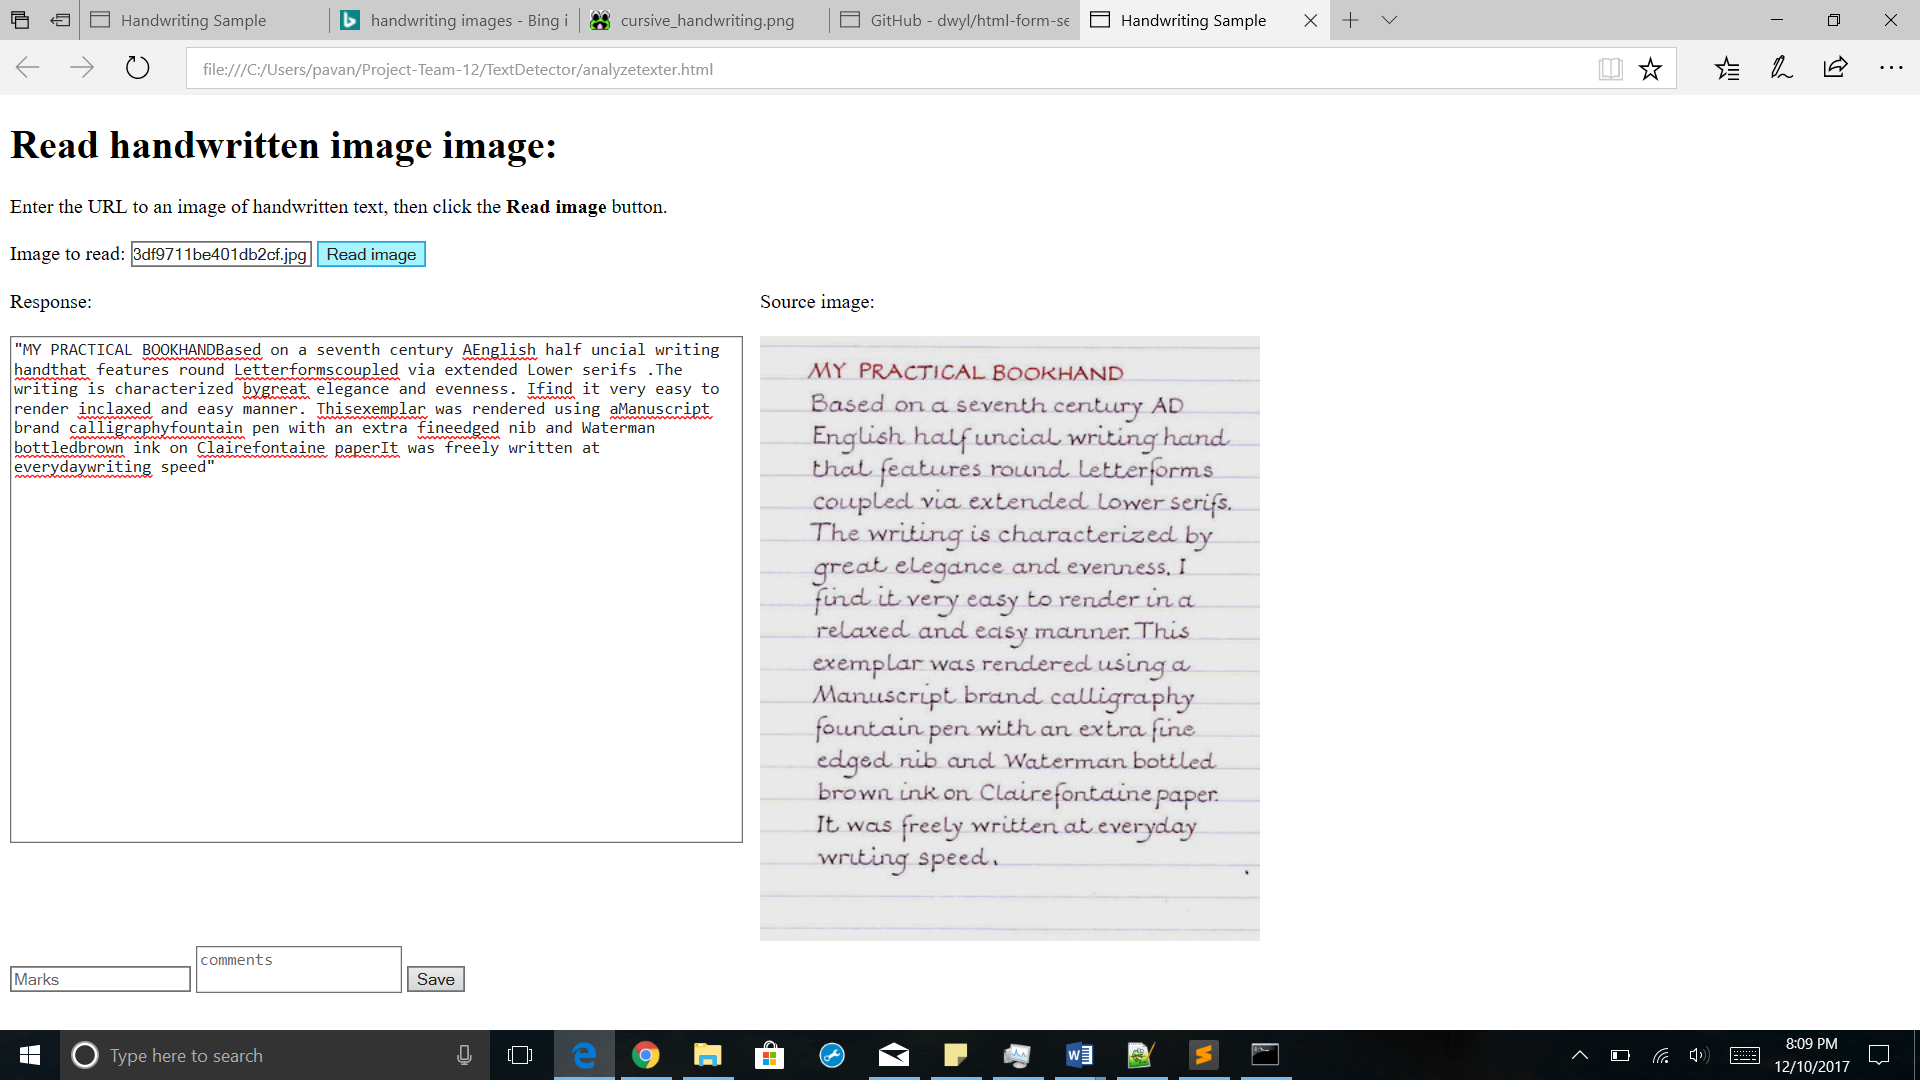 Handwriting Sample
handwriting images - Bing i
cursive_handwriting.png
GitHub - dwyl/html-form-se
Handwriting Sample
file:///C:/Users/pavan/Project-Team-12/TextDetector/analyzetexter.html
Read handwritten image image:
Enter the URL to an image of handwritten text, then click the Read image button.
Image to read: 3df9711be401db2cf.jpg Read image
Response:
"MY PRACTICAL BOOKHANDBased on a seventh century AEnglish half uncial writing
handthat features round Letterformscoupled via extended Lower serifs .The
writing is characterized bygreat elegance and evenness. Ifind it very easy to
render inclaxed and easy manner. Thisexemplar was rendered using aManuscript
brand calligraphyfountain pen with an extra fineedged nib and Waterman
bottledbrown ink on Clairefontaine paperIt was freely written at
everydaywriting speed"
Source image:
MY PRACTICAL BOOKHAND
Based on a seventh century AD
English half uncial writing hand
that features round letterforms
coupled via extended lower serifs.
The writing is characterized by
great elegance and evenness. I
find it very easy to render in a
relaxed and easy manner. This
exemplar was rendered using a
Manuscript brand calligraphy
fountain pen with an extra fine
edged nib and Waterman bottled
brown ink on Clairefontaine paper.
It was freely written at everyday
writing speed.
Marks
comments
Save
Type here to search
8:09 PM
12/10/2017